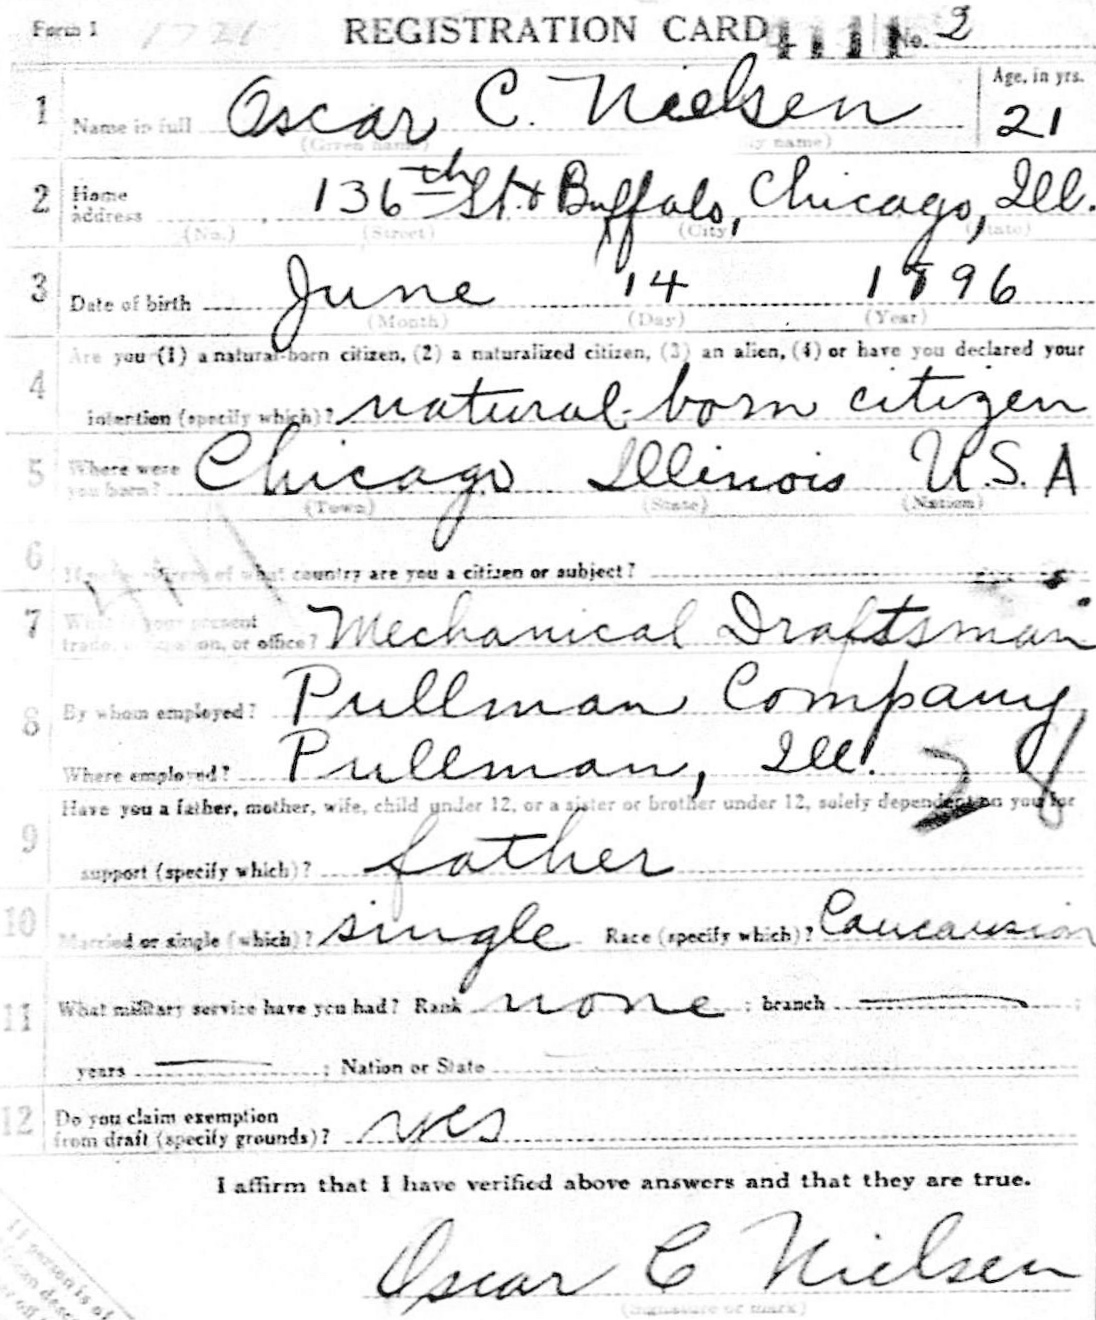 Form 1 1721 REGISTRATION CARD 4111 No. 2
1 Name in full Oscar C. Nielsen Age, in yrs. 21
(Given name) (Family name)
2 Home address 136th St. & Buffalo, Chicago, Ill.
(No.) (Street) (City) (State)
3 Date of birth June 14 1896
(Month) (Day) (Year)
4 Are you (1) a natural-born citizen, (2) a naturalized citizen, (3) an alien, (4) or have you declared your
intention (specify which)? natural-born citizen
5 Where were you born? Chicago Illinois U.S.A
(Town) (State) (Nation)
6 If not a citizen of what country are you a citizen or subject?
7 What is your present trade, occupation, or office? Mechanical Draftsman
8 By whom employed? Pullman Company
Where employed? Pullman, Ill.
9 Have you a father, mother, wife, child under 12, or a sister or brother under 12, solely dependent on you for
support (specify which)? father
10 Married or single (which)? single Race (specify which)? Caucausion
11 What military service have you had? Rank none ; branch ;
years ; Nation or State
12 Do you claim exemption from draft (specify grounds)? yes
I affirm that I have verified above answers and that they are true.
Oscar C Nielsen
(Signature or mark)
If person is of